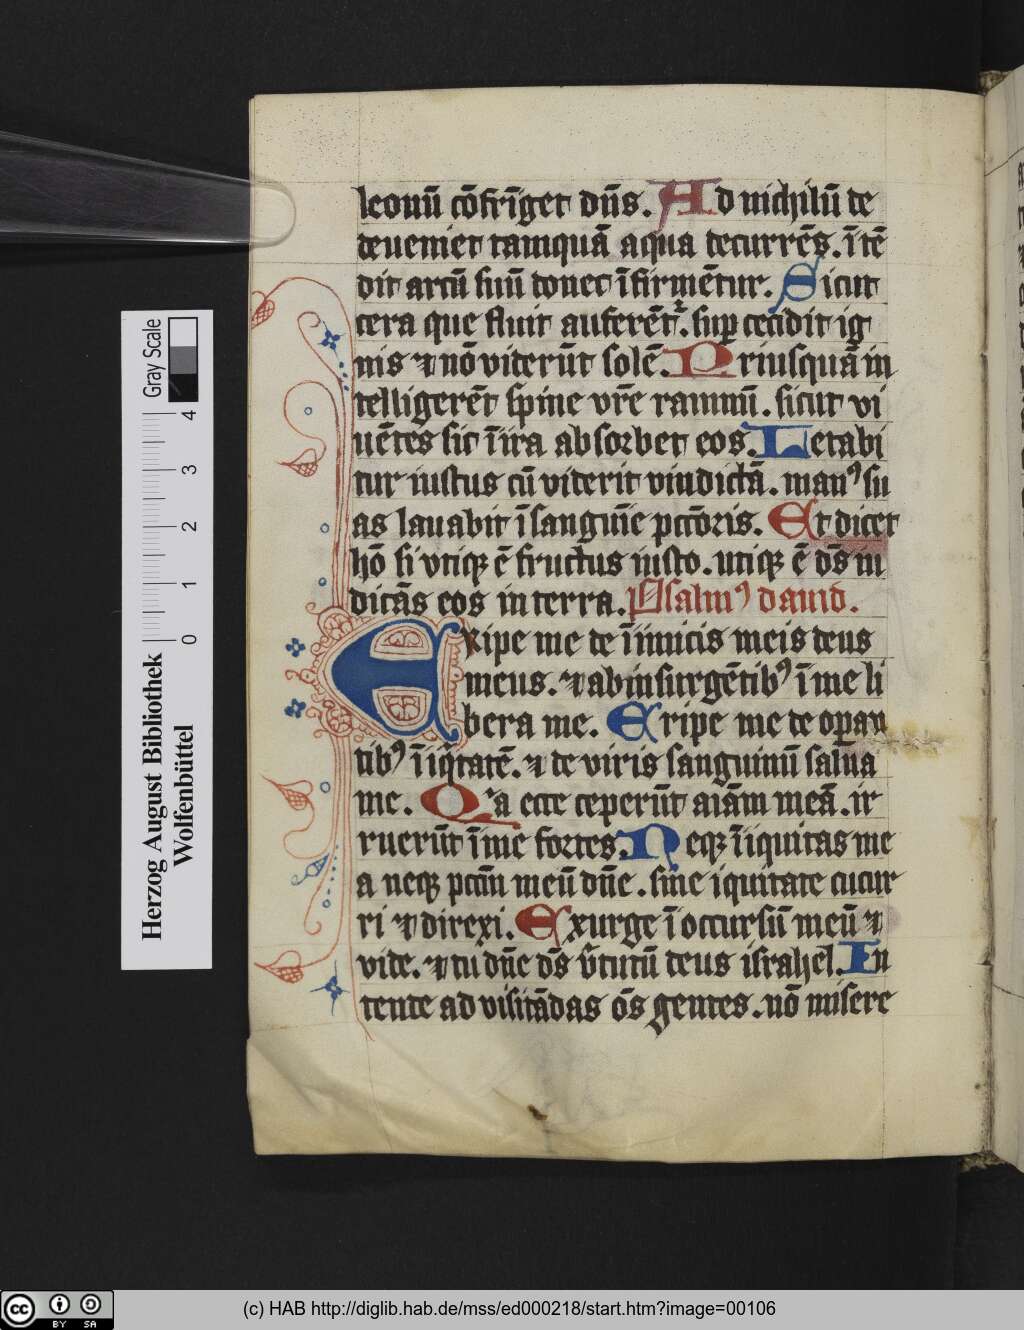 leonū cōfrīget dn̄s. Ad nichilū de
deueniet tamquā aqua decurrēs. ītē
dit arcū suū donec īfirmētur. Sicut
cera que fluit auferēt᷑. sup̄ cecidit ig
nis ⁊ nō viderūt solē. Priusquā in
telligerēt spine vr̄e ramnū. sicut vi
uētes sic ī ira absorbet eos. Letabi
tur iustus cū viderit vindictā. manꝰ su
as lauabit ī sanguīe pctōris. Et dicet
hō si vtiqꝫ ē fructus iusto. utiqꝫ ē ds̄ iu
dicās eos in terra. Psalmꝰ dauid.
Eripe me de īimicis meis deus
meus. ⁊ ab insurgētibꝰ ī me li
bera me. Eripe me de operan
tibꝰ īiqͥtatē. ⁊ de viris sanguinū salua
me. Qͥa ecce ceperūt aīam meā. ir
ruerūt ī me fortes. Neqꝫ īiquitas me
a neqꝫ pctm̄ meū dn̄e. sine iquitate cucur
ri ⁊ direxi. Exurge ī occursū meū ⁊
vide. ⁊ tu dn̄e ds̄ v̄tutū deus israhel. In
tende ad visitādas ōs gentes. nō misere
Herzog August Bibliothek
Wolfenbüttel
Gray Scale
0 1 2 3 4
cc BY SA
(c) HAB http://diglib.hab.de/mss/ed000218/start.htm?image=00106